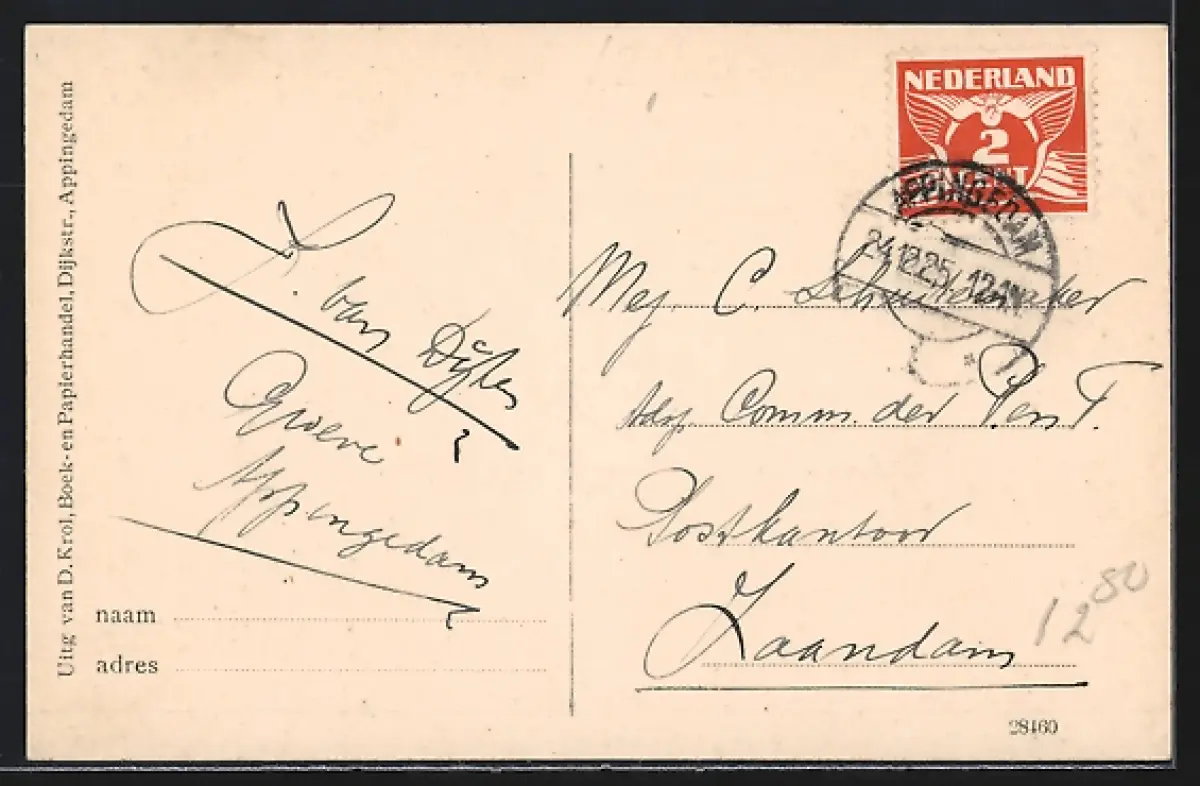 Uitg van D. Krol, Boek- en Papierhandel, Dijkstr., Appingedam
NEDERLAND
2
APPINGEDAM
24.12.25 12-1N
van Dijk
Appingedam
naam
adres
Mej. C.
Adj. Comm. der P. en T.
Postkantoor
Zaandam
12 80
28460